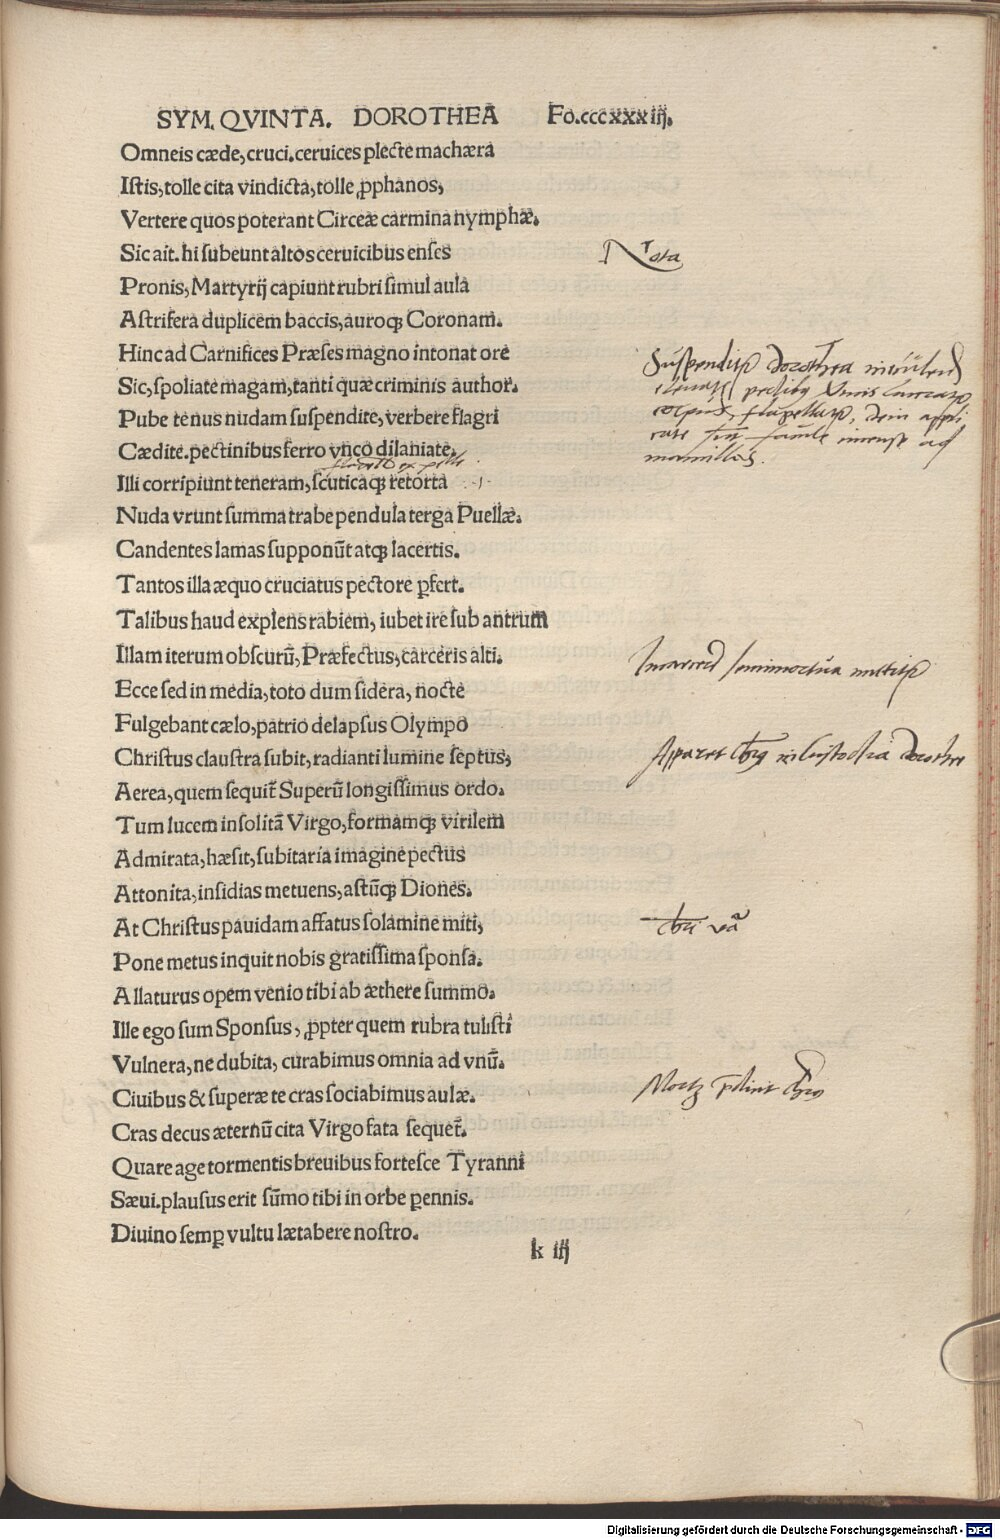 SYM. QVINTA. DOROTHEA Fo.cccxxxiij.
Omneis cæde, cruci. ceruices plecte machæra
Istis, tolle cita vindicta, tolle ꝓphanos,
Vertere quos poterant Circeæ carmina nymphæ.
Sic ait. hi subeunt altos ceruicibus enses
Nota
Pronis, Martyrij capiunt rubri simul aula
Astrifera duplicem baccis, auroqꝫ Coronam.
Hinc ad Carnifices Præses magno intonat ore
Sic, spoliate magam, tanti quæ criminis author.
Pube tenus nudam suspendite, verbere flagri
Cædite. pectinibus ferro vnco dilaniate.
Suspenditur dorothea
corpus, flagellatur, dein appli
mamillas.
Illi corripiunt teneram, scuticaqꝫ retorta
Nuda vrunt summa trabe pendula terga Puellæ.
Candentes lamas supponūt atqꝫ lacertis.
Tantos illa æquo cruciatus pectore ꝑfert.
Talibus haud explens rabiem, iubet ire sub antrum
Illam iterum obscurū, Præfectus, carceris alti.
In carcerē seminortua mittitur
Ecce sed in media, toto dum sidera, nocte
Fulgebant cælo, patrio delapsus Olympo
Christus claustra subit, radianti lumine septus,
Apparet chrūs in custodia dorothee
Aerea, quem sequit̄ Superū longissimus ordo.
Tum lucem insolitā Virgo, formamqꝫ virilem
Admirata, hæsit, subitaria imagine pectus
Attonita, insidias metuens, astūqꝫ Diones.
At Christus pauidam affatus solamine miti,
Pone metus inquit nobis gratissima sponsa.
Allaturus opem venio tibi ab æthere summo.
Ille ego sum Sponsus, ꝓpter quem rubra tulisti
Vulnera, ne dubita, curabimus omnia ad vnū.
Ciuibus & superæ te cras sociabimus aulæ.
Cras decus æternū cita Virgo fata sequet̄.
Quare age tormentis breuibus fortesce Tyranni
Sæui. plausus erit sūmo tibi in orbe ꝑennis.
Diuino semꝑ vultu lætabere nostro.
k iij
Digitalisierung gefördert durch die Deutsche Forschungsgemeinschaft - DFG